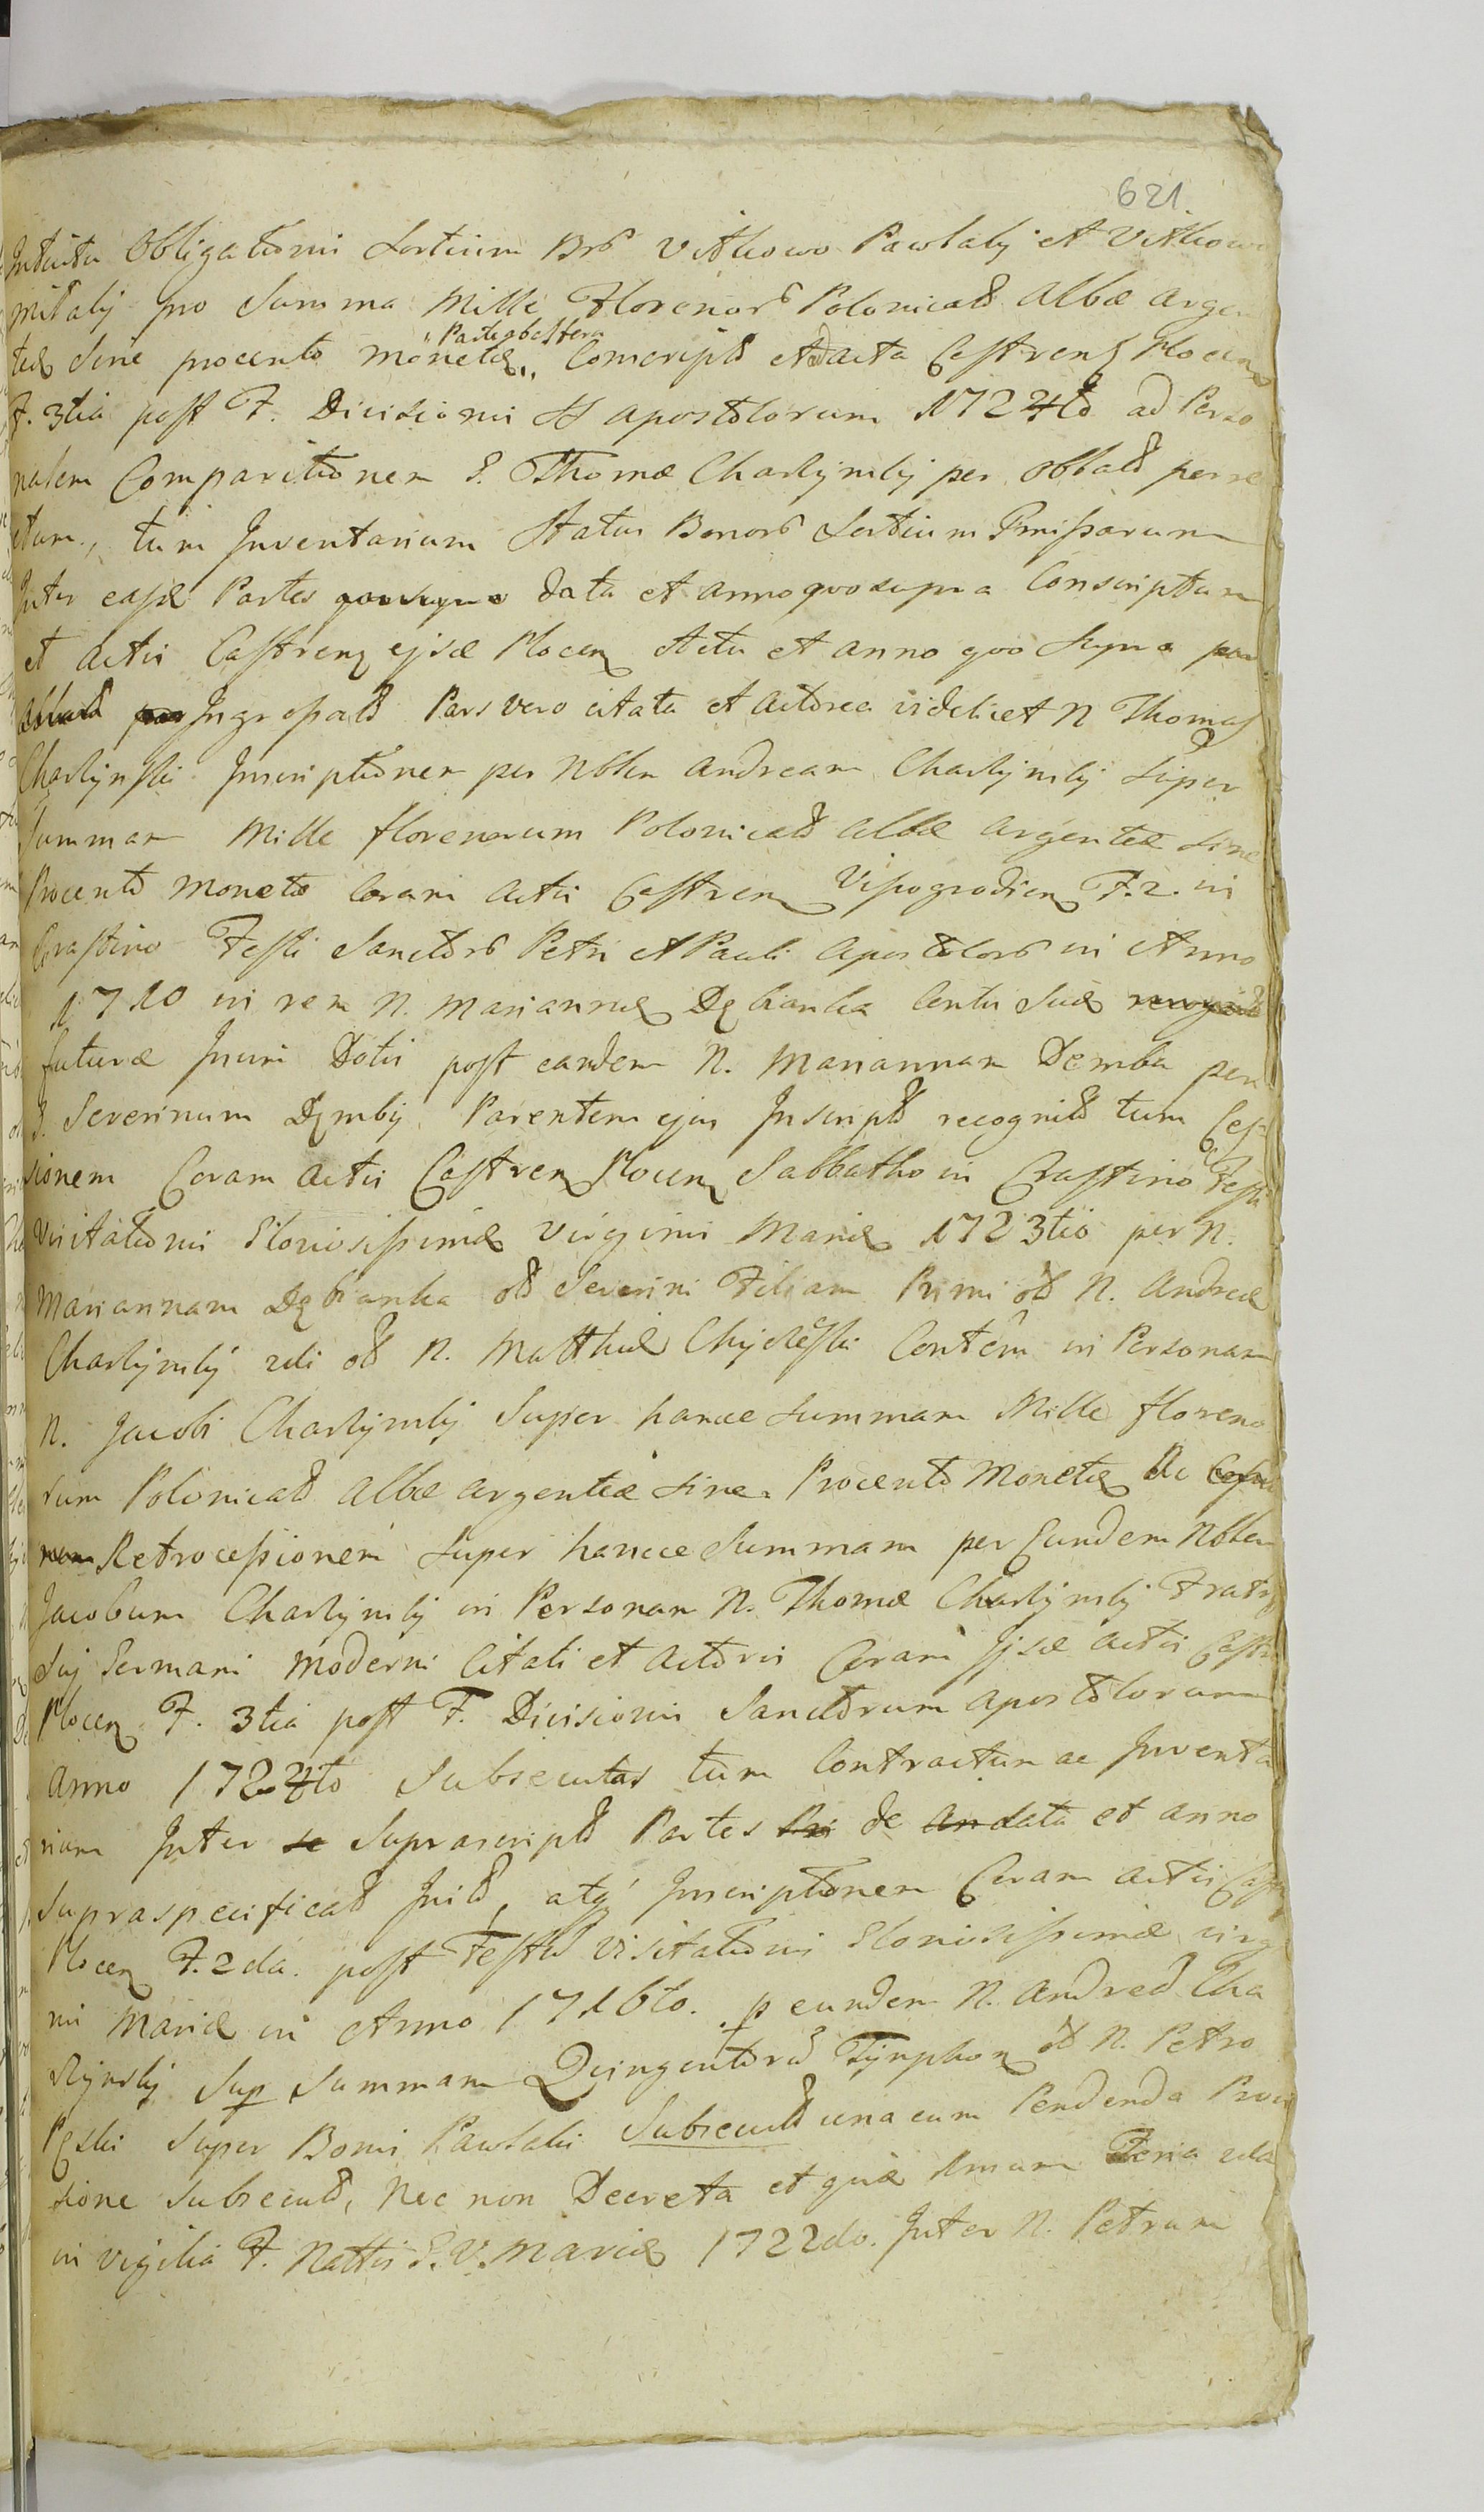 621
Intuitu Obligationis Sortium Brs Vitkowo Pawłaby et Vitkowo
mitaby pro Summa Mille Florenors Polonicald albæ argen
teæ Sine procento Monetæ „ Partes obestera „ Conscript et ad acta Castren Plocen
F. 3tia post F. Divisionis SS Apostolorum 1724to ad Perso
nalem Comparitionem G. Thomæ Charłynsky per Oblatd perre
ctum, tum Inventarium Status Bonors Sortium Pmissarum
Inter easd Partes data et anno quo supra Conscriptum
et actis Castren ejsd Plocen Actu et anno quo Supra
Ingrossatd Pars vero citata et Actorea videlicet N Thomas
Charłynski Inscriptionem per Nblem Andream Charłynsky Super
Summam Mille florenorum Polonicald albæ argenteæ sine
Procento Monetæ Coram Actis Castren Vissogrodien F. 2. in
Crastino Festi Sanctors Petri et Pauli Apostolors in Anno
1710 in rem N. Mariannæ Dębianka Contis Suæ
futuræ Juri Dotis post eandem N. Mariannam Demba per
G. Severinum Dęmby Parentem ejus Inscriptd recognitd tum Ces
sionem Coram Actis Castren Plocen Sabbatho in Crastino Festi
Visitationis Gloriosissimæ Virginis Mariæ 1723tio per N.
Mariannam Dębianka olb Severini Filiam Primi olb N. Andreæ
Charłynsky 2di olb N. Matthiæ Contem in Personam
N. Jacobi Charłynsky Super hance Summam Mille floreno
rum Polonicald albæ argenteæ sine Procento Monetæ De
Retrocessionem Super hancce Summam per Eundem Nblem
Jacobum Charłynsky in Personam N. Thomæ Charłynsky Fratris
Sui Germani Moderni Citati et Actoris Coram Ijsd Actis Castr
Plocen F. 3tia post F. Divisionis Sanctorum Apostolorum
Anno 1724to Subsecutas tum Contractum ac Inventa
rium Inter se Suprascriptd Partes de data et anno
Supraspecificatd Initd, atq Inscriptionem Coram Actis Castr
Plocen F. 2da. post Festd Visitationis Gloriosissimæ virg
nis Mariæ in Anno 1716to. p eundem N. Andread Cha
rłynsky Sup Summam Quingentord Tynphon olb N. Petro
Pęski Super Bonis Pawłabi Subsecutd una cum Pendenda Provi
sione Subsecutd, Nec non Decreta et quid Feria 2da
in vigilia F. Nattis G. V. Mariæ 1722do. Inter N. Petrum